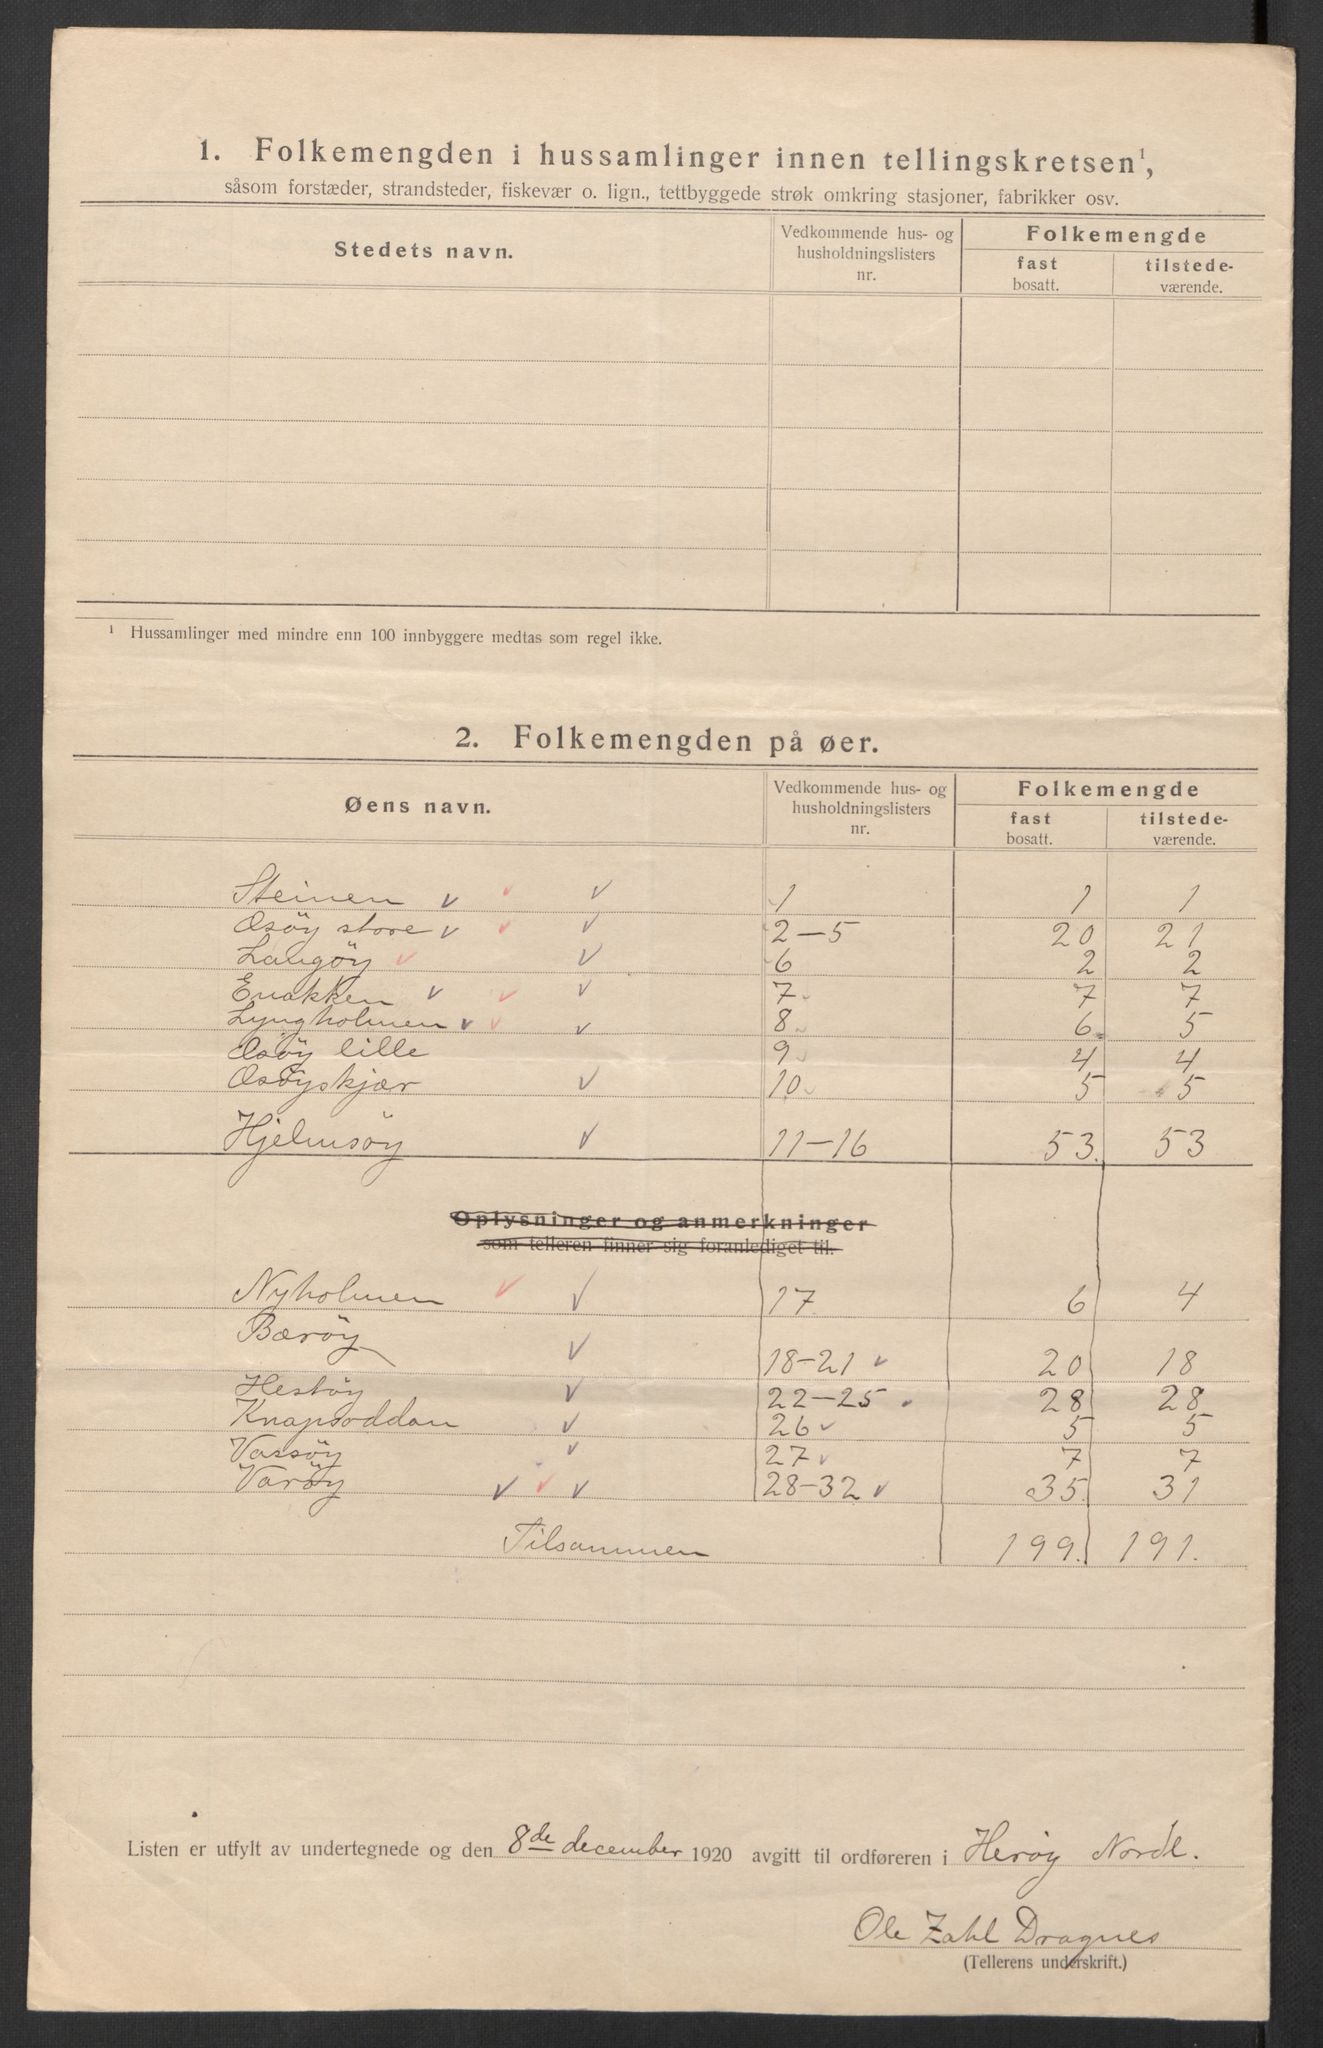 1. Folkemengden i hussamlinger innen tellingskretsen¹,
såsom forstæder, strandsteder, fiskevær o. lign., tettbyggede strøk omkring stasjoner, fabrikker osv.
Stedets navn.
Vedkommende hus- og husholdningslisters nr.
Folkemengde
fast bosatt.
tilstede-værende.
¹ Hussamlinger med mindre enn 100 innbyggere medtas som regel ikke.
2. Folkemengden på øer.
Øens navn.
Vedkommende hus- og husholdningslisters nr.
Folkemengde
fast bosatt.
tilstede-værende.
Steinen 1 1 1
Æsöy store 2-5 20 21
Langöy 6 2 2
7 7 7
Lyngholmen 8 6 5
Æsöy lille 9 4 4
Æsöyskjær 10 5 5
Hjelmsöy 11-16 53 53
Oplysninger og anmerkninger
som telleren finner sig foranlediget til.
Nyholmen 17 6 4
Bæröy 18-21 20 18
Hestöy 22-25 28 28
Knapsoddan 26 5 5
27 7 7
Varöy 28-32 35 31
Tilsammen 199. 191.
Listen er utfylt av undertegnede og den 8de december 1920 avgitt til ordføreren i Heröy Nordl.
Ole Zahl Dragnes
(Tellerens underskrift.)